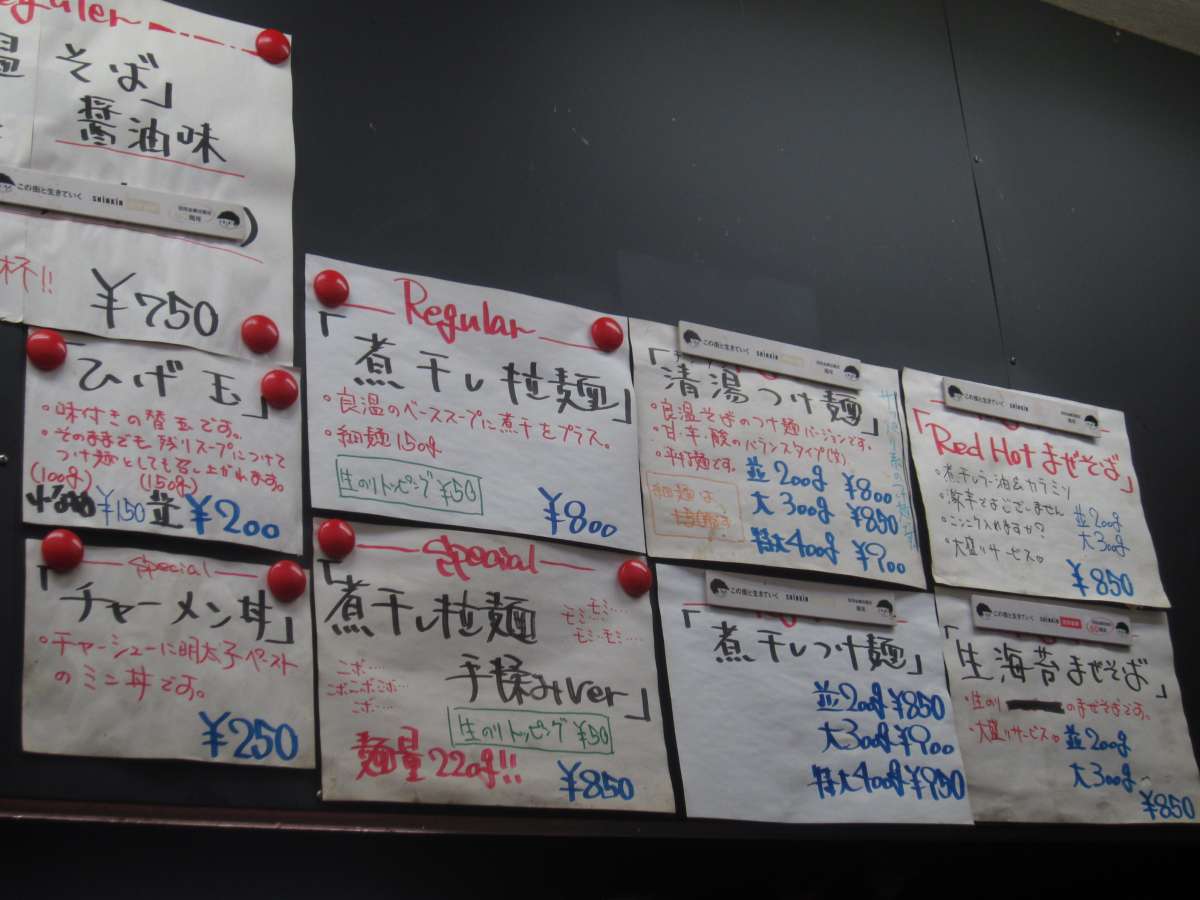 Reguler
温 そば」
醤油味
この街と生きていく
杯!!
¥750
「ひげ玉」
・味付きの替玉です。
・そのままでも残りスープにつけて
つけ麺としても召し上がれます。
(100g) (150g)
¥150 並 ¥200
Special
「チャーメン丼」
・チャーシューに明太子ペースト
のミニ丼です。
¥250
Regular
「煮干し拉麺」
・良温のベーススープに煮干をプラス。
・細麺150g
生のりトッピング ¥50
¥800
Special
「煮干し拉麺
モミ…
モミ…
モミ・モミ…
手揉みver」
コボ…
コボコボコボ…
コボ…
生のりトッピング ¥50
麺量220g!!
¥850
この街と生きていく
「清湯つけ麺」
・良温そばのつけ麺バージョンです。
・甘・辛・酸のバランスタイプ
・平打麺です。
細麺は
並200g ¥800
大300g ¥850
特大400g ¥900
この街と生きていく
「煮干しつけ麺」
並200g ¥850
大300g ¥900
特大400g ¥950
この街と生きていく
「Red Hotまぜそば」
・煮干しラー油&カラミソ
・激辛ではございません
・ニンニク入れますか?
・大盛りサービス♡
並200g
大300g
¥850
この街と生きていく
「生海苔まぜそば」
・生のり のまぜそばです。
・大盛りサービス♡
並200g
大300g
¥850